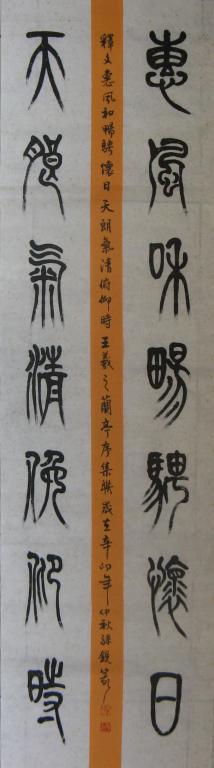 惠風和暢騁懷日
釋文惠風和暢騁懷日天朗氣清俯仰時王羲之蘭亭序集聯歲在辛卯年仲秋
天朗氣清俛仰時